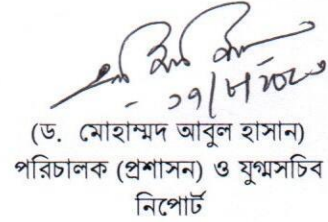 (ড. মোহাম্মদ আবুল হাসান)
পরিচালক (প্রশাসন) ও যুগ্মসচিব
নিপোর্ট